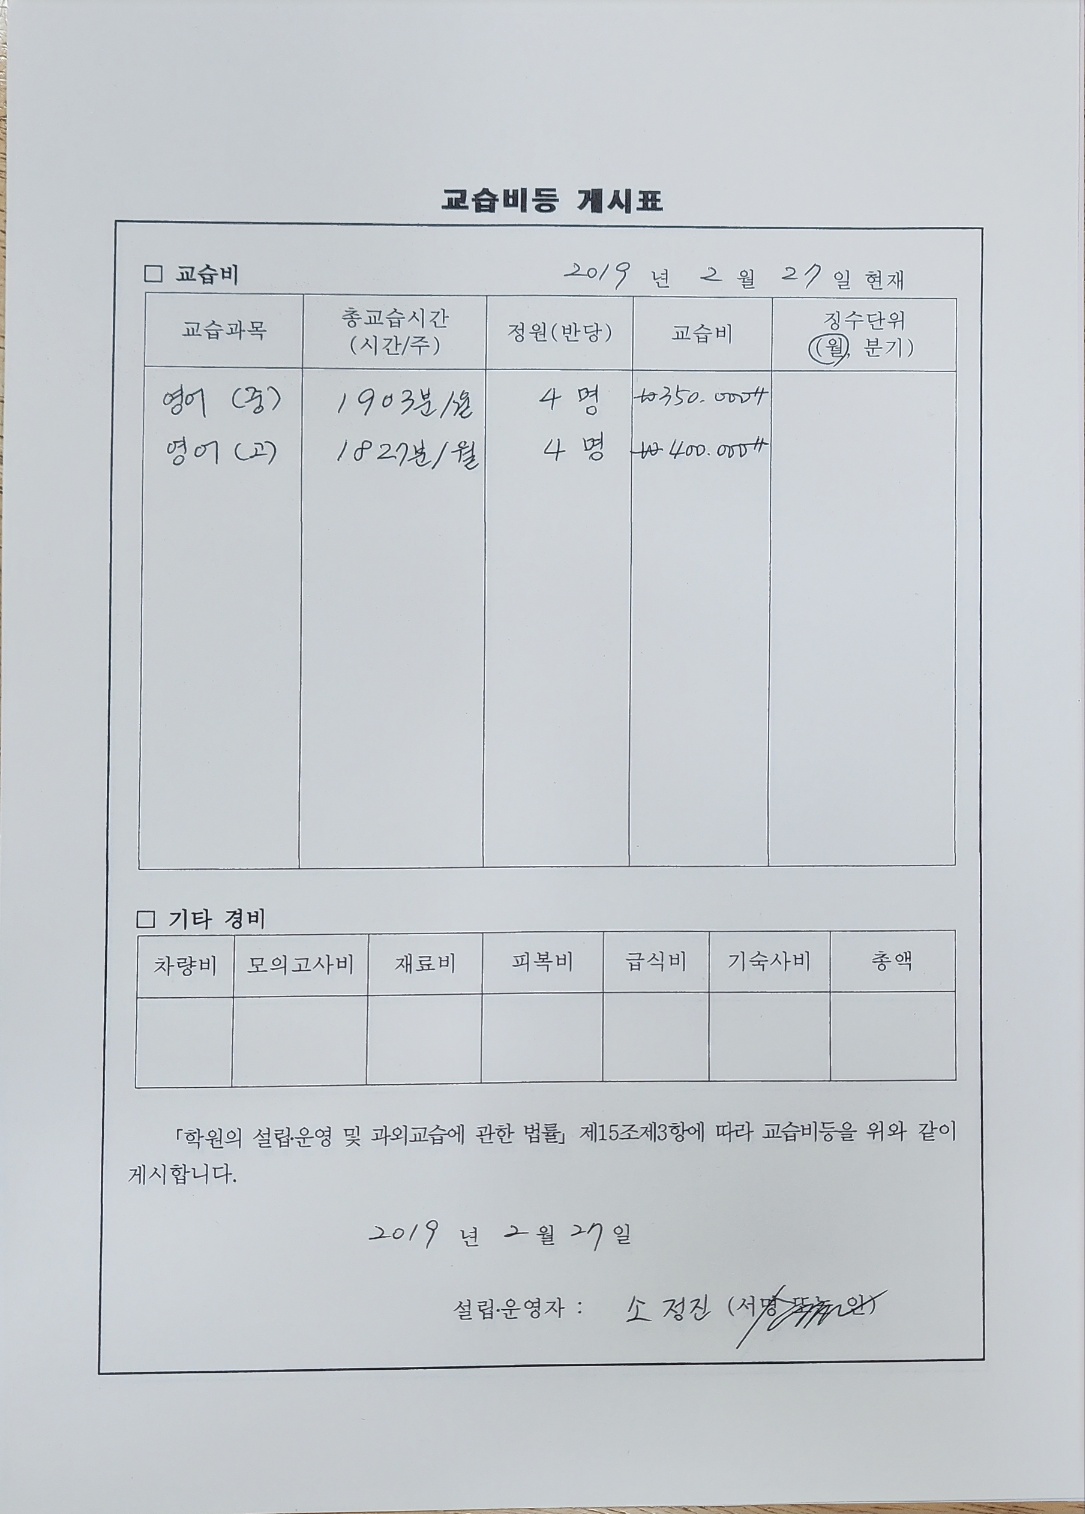 교습비등 게시표
□ 교습비 2019 년 2 월 27 일 현재
교습과목 총교습시간 (시간/주) 정원(반당) 교습비 징수단위 (월, 분기)
영어 (중) 1903분/월 4 명 ₩350.000#
영어 (고) 1827분/월 4 명 ₩400.000#
□ 기타 경비
차량비 모의고사비 재료비 피복비 급식비 기숙사비 총액
「학원의 설립·운영 및 과외교습에 관한 법률」 제15조제3항에 따라 교습비등을 위와 같이
게시합니다.
2019 년 2 월 27 일
설립·운영자 : 소정진 (서명 또는 인)